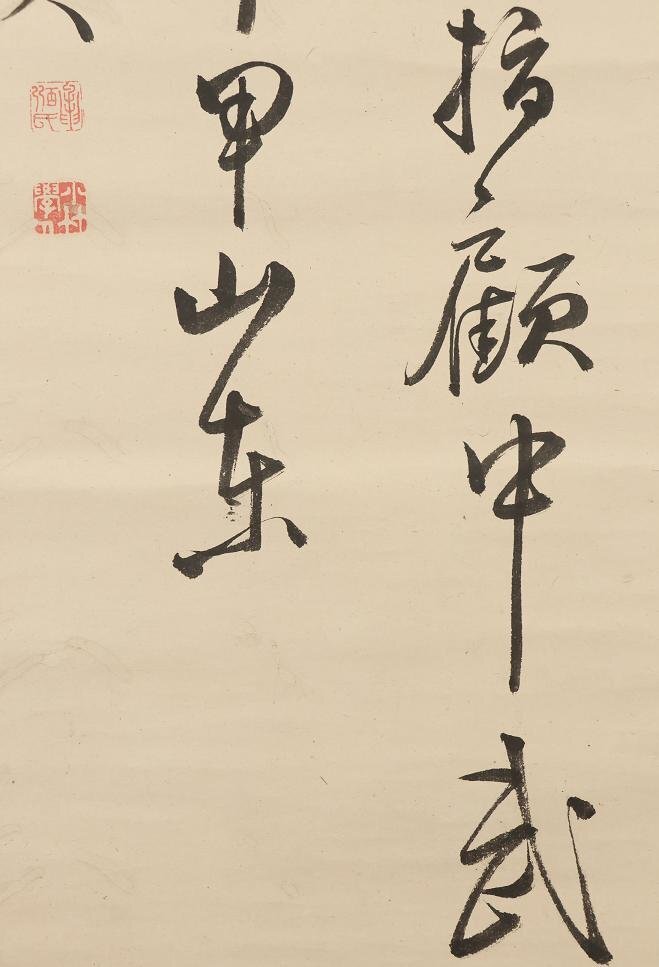 指顧中武
甲山東